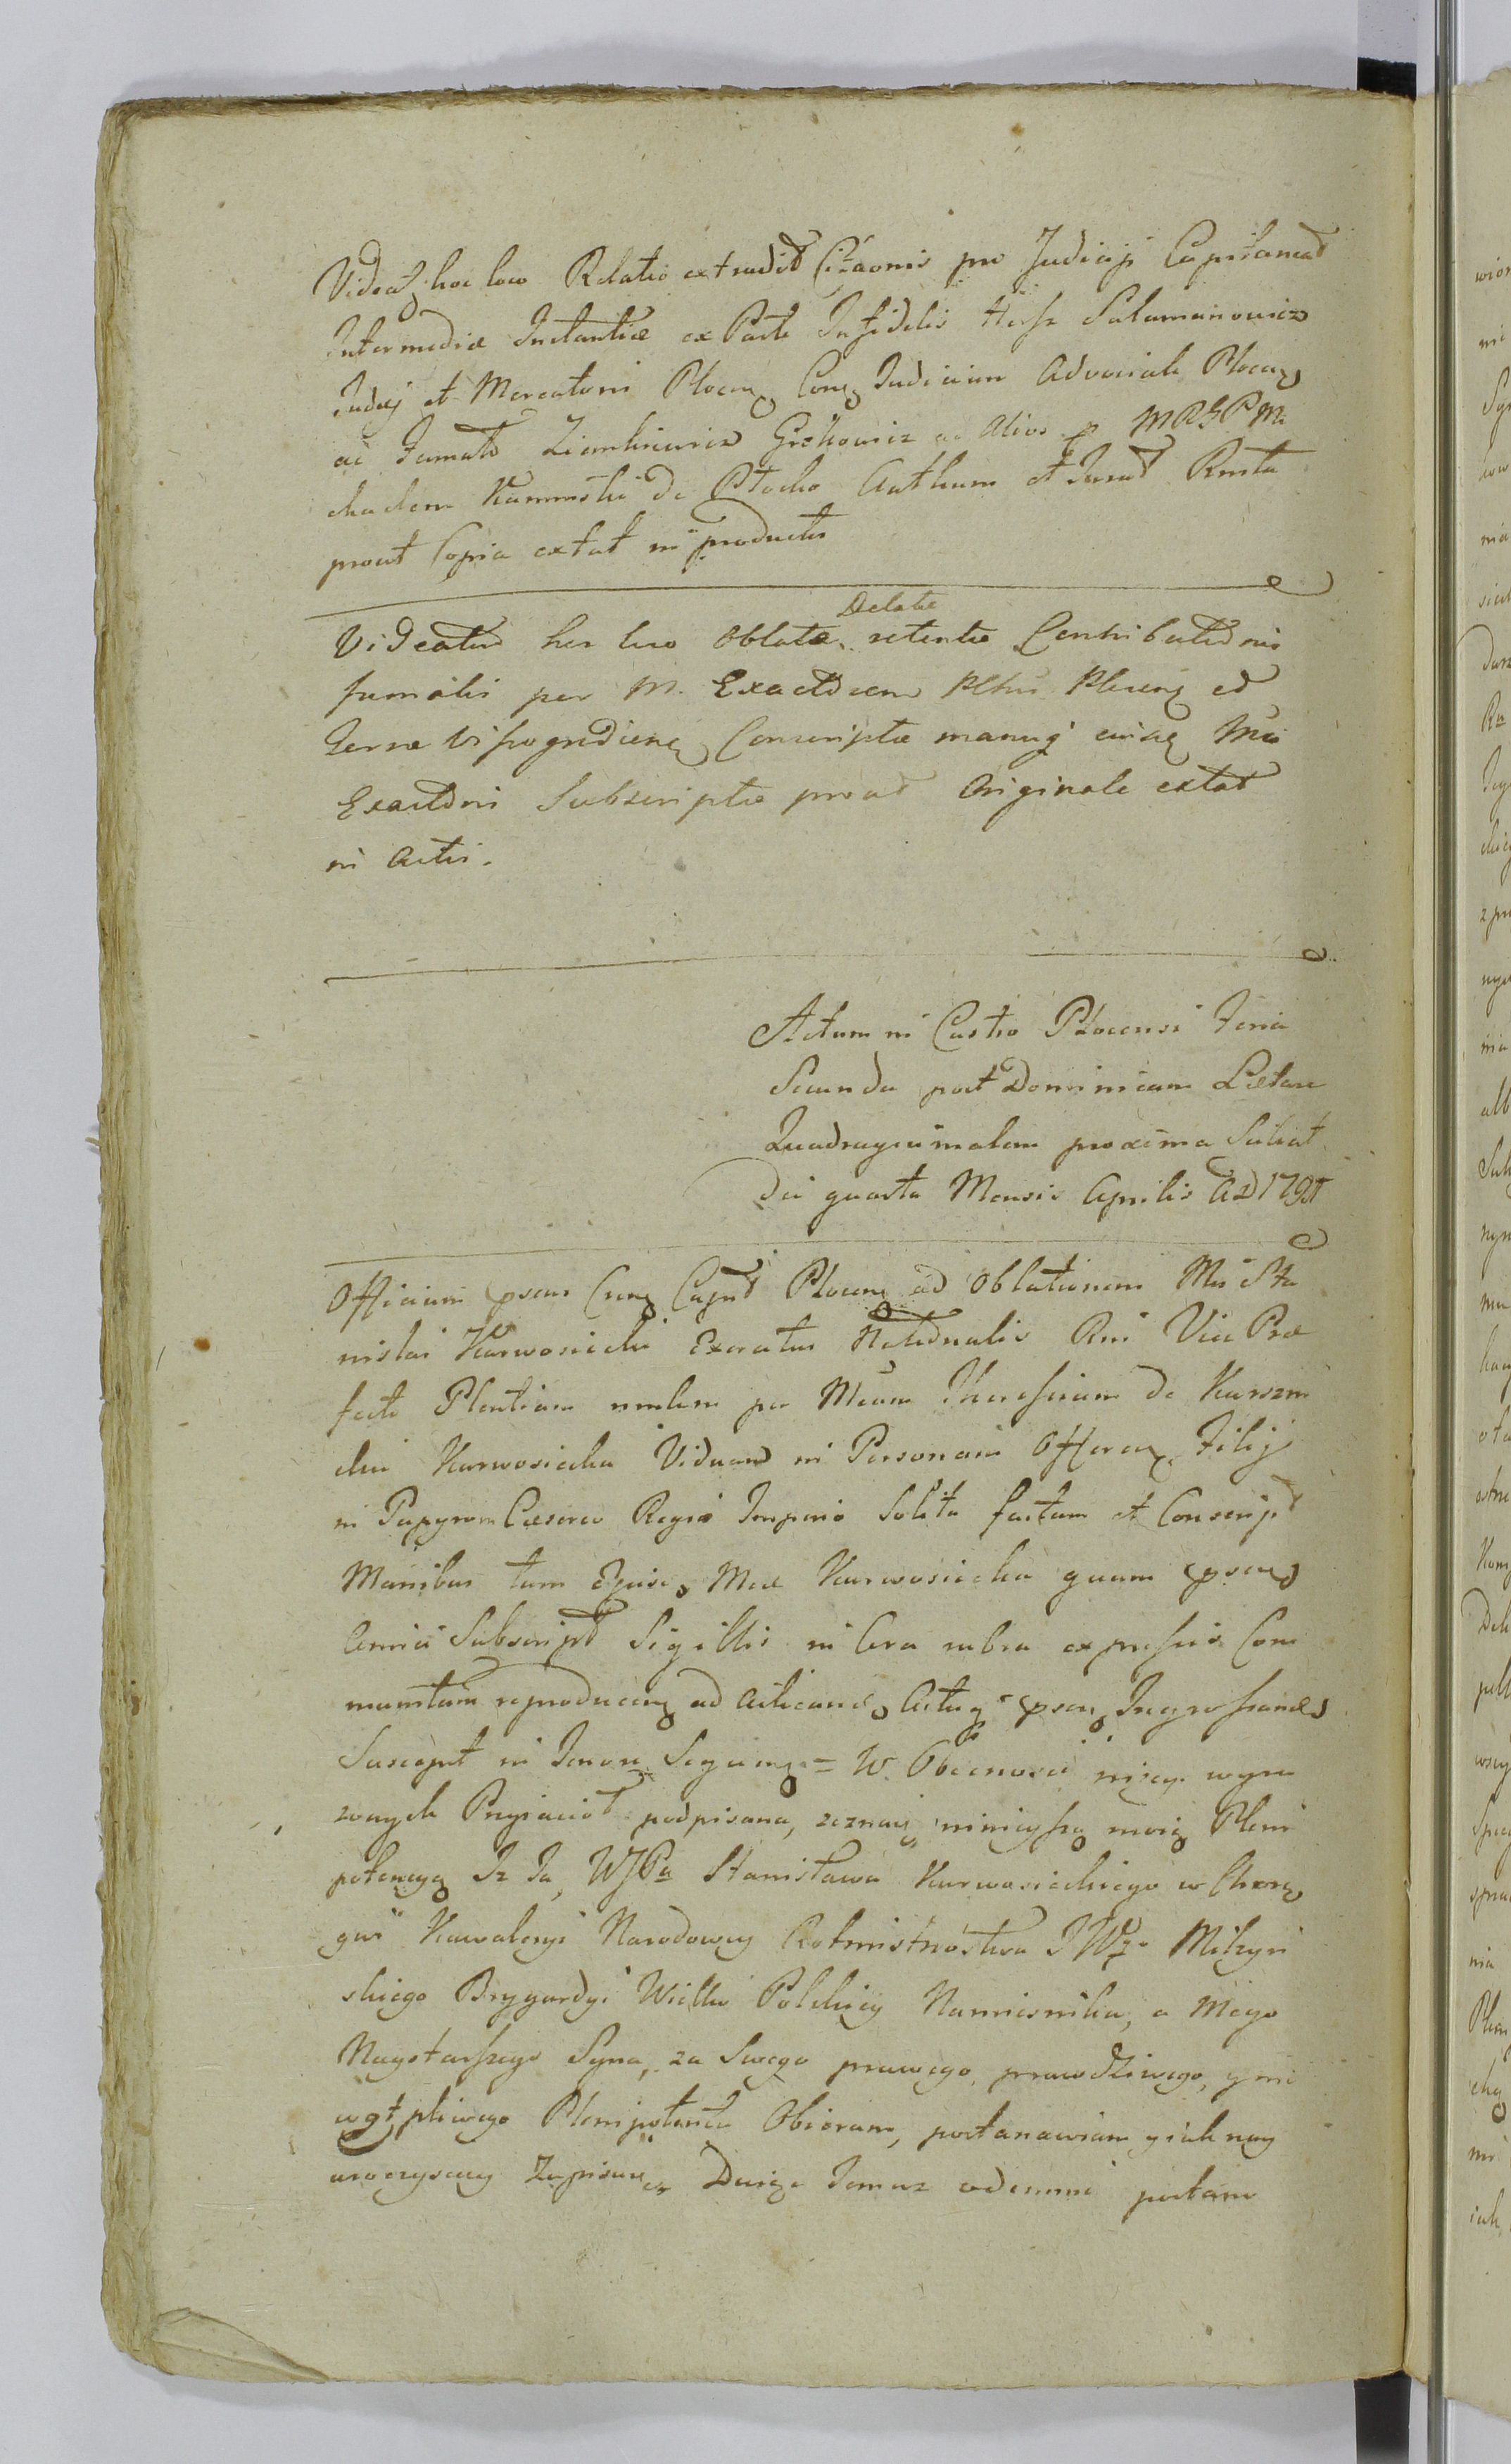 Videat hoc loco Relatio extradit Citaonis pro Judicijs Capitaneat
Intermediæ Instantiæ ex Parte Infidelis Hersz Salamanowicz
Judæj et Mercatoris Plocen Con Judicium Advociale Plocen
ac Famat Ziemkiewicz Grekowicz ac Alios p MRGP Mi
chaelem Kaminski de Plocko Authum et Jurat Rmta
prout Copia extat in productis
Videatur hoc loco Oblata Delatæ retentæ Contributionis
fumalis per M. Exactorem Pltus Plocen et
Terræ Vissogrodiens Conscriptæ manuq eiusd Mci
Exactoris Subscriptæ prout Originale extat
in Actis.
Actum in Castro Plocensi Feria
Secunda post Dominicam Lætare
Quadragesimalem proxima Sabbat
die quarta Mensis Aprilis AD 1795
Officium psens Cap Plocen ad Oblationem Mci Sta
nislai Karwosiecki Exercitus Rni Vice Præ
fecti Plentiam per Mcam Theressiam de
cka Karwosiecka Viduam in Personam Offeren Filij
in Papyro Cæsareo Regio Imperio Solita factam et Conscript
Manibus tum Ejusd Mcæ Karwosiecka quam psen
Amici Subscript Sigillis in Cera rubra expressis Com
munitam reproducen ad Acticand Actuq psen Ingrossand
Suscept in Tenore Sequen = W Obecności niżey wyra
zonych Przyiaciół podpisana, zeznaię ninieyszą moią Pleni
potencyą Iz Ja, WJPa Stanisława Karwosieckiego w Chorą
gwi Kawaleryi Narodowey Rotmistrzostwa JW
skiego Brygardyi Wielko Polskiey Namiesnika, a Mego
Naystarszego Syna, za Swego prawego, prawdziwego, y nie
wątpliwego Plenipotenta Obieram, postanawiam y iak nay
uroczysciey Zapisuię Daiąc Temuz odemnie postano